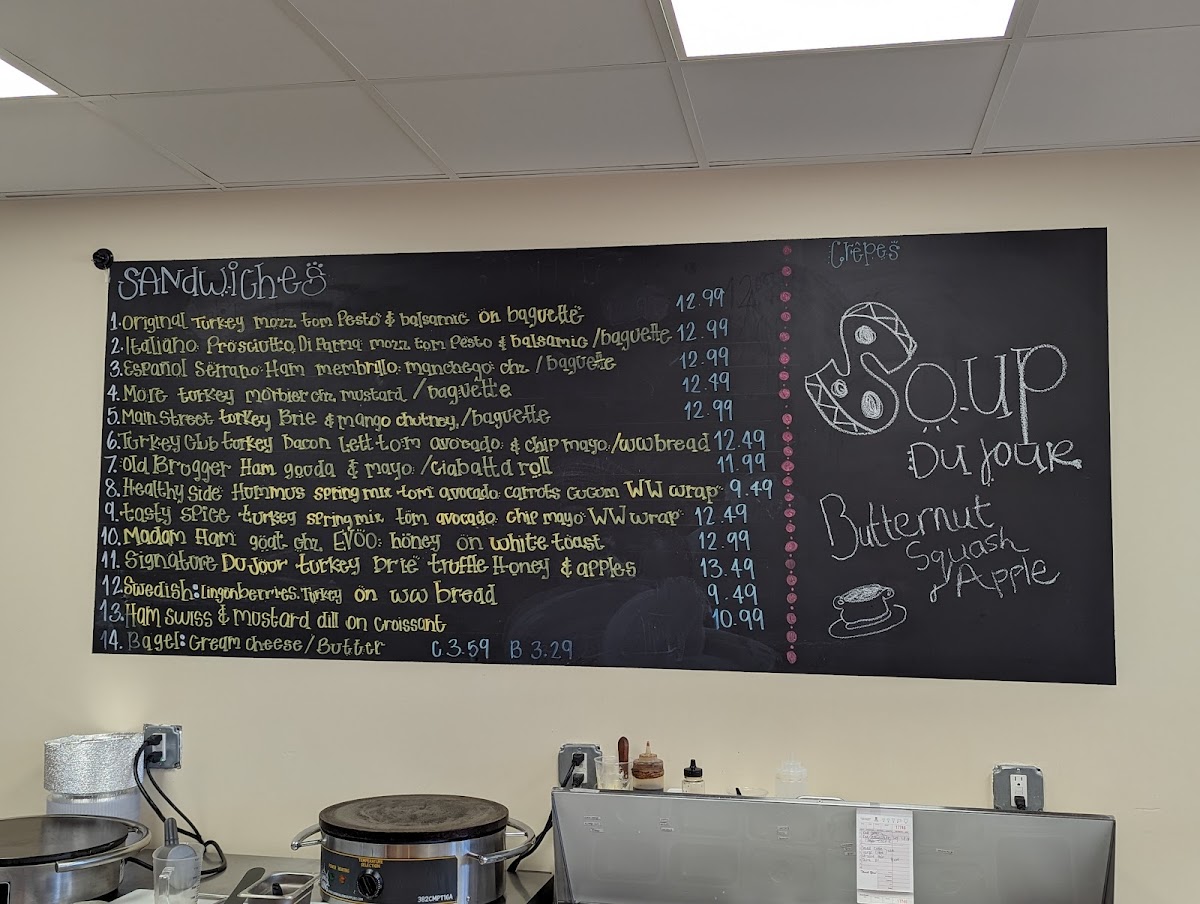 SANDWiCHES
1. Original Turkey mozz tom Pesto & balsamic on baguette 12.99
2. Italiano: Prosciutto Di Parma mozz tom Pesto & balsamic /baguette 12.99
3. Español Serrano Ham membrillo manchego chz /baguette 12.99
4. More turkey morbier chz mustard /baguette 12.49
5. Main Street turkey Brie & mango chutney /baguette 12.99
6. Turkey Clb turkey bacon Lett tom avocado & chip mayo /ww bread 12.49
7. Old Brogger Ham gouda & mayo /Ciabatta roll 11.99
8. Healthy Side Hummus spring mix tom avocado carrots cucum WW wrap 9.49
9. tasty Spice turkey spring mix tom avocado chip mayo WW wrap 12.49
10. Madam Ham goat chz EVOO honey on white toast 12.99
11. Signature Du jour turkey brie truffle Honey & apples 13.49
12. Swedish: Lingonberries. Turkey on ww bread 9.49
13. Ham swiss & mustard dill on croissant 10.99
14. Bagel: Cream cheese / Butter C 3.59 B 3.29
Crêpes
Soup
Du jour
Butternut
Squash
& Apple
TEMPERATURE
SELECTION
382CMPT16A